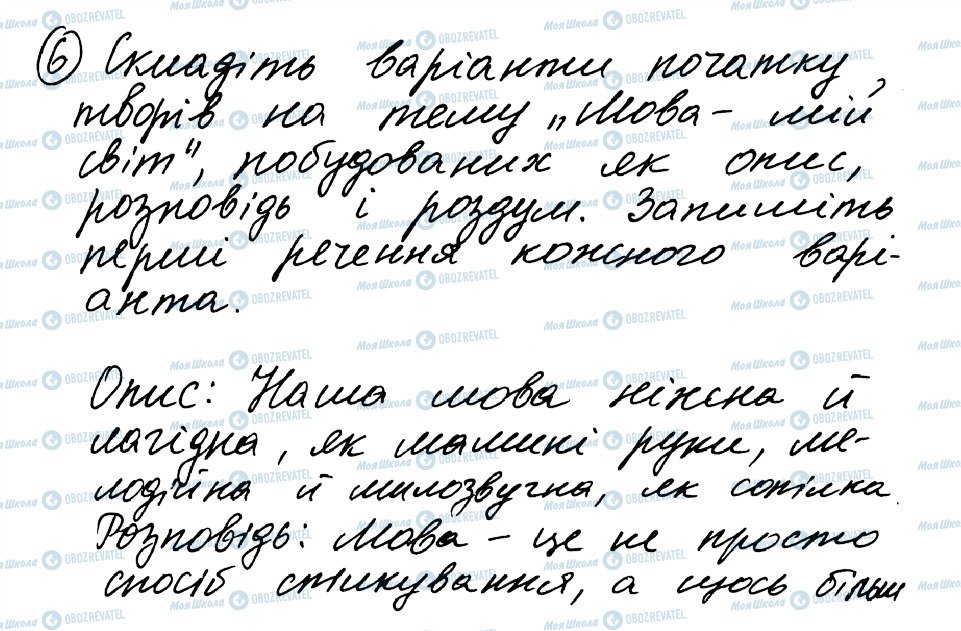 6 Складіть варіанти початку
творів на тему „Мова – мій
світ", побудованих як опис,
розповідь і роздум. Запишіть
перші речення кожного варі-
анта.
Опис: Наша мова ніжна й
лагідна, як мамині руки, ме-
лодійна й милозвучна, як сопілка.
Розповідь: Мова – це не просто
спосіб спілкування, а щось більш